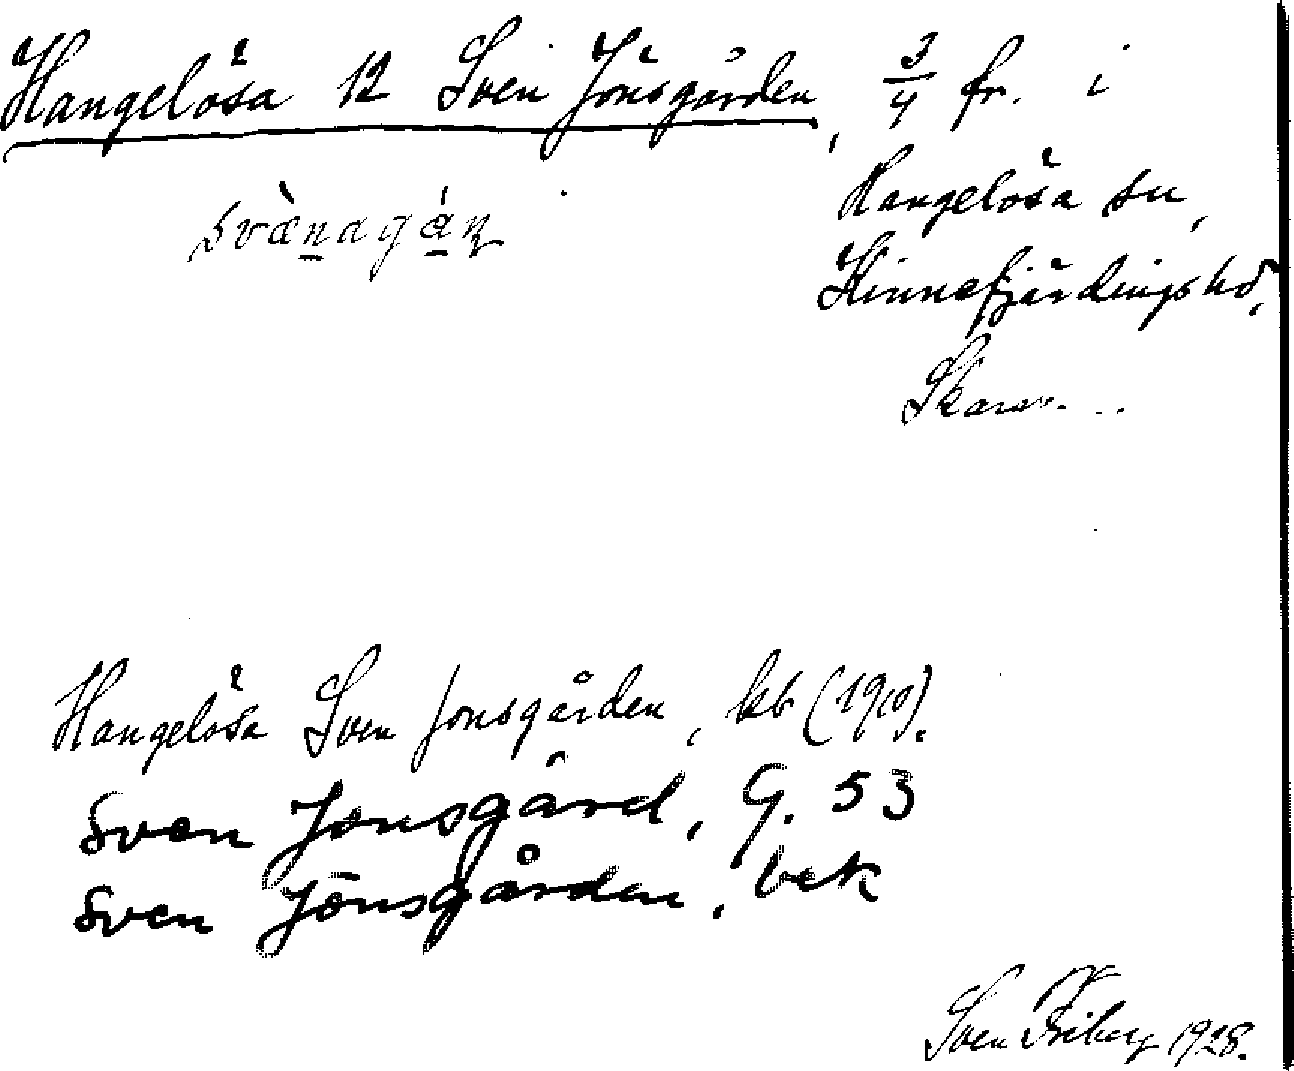 Hangelösa 12 Sven Jönsgården, 3/4 fr. i
Hangelösa sn,
svæ̀nagá̱ṇ
Kinnefjärdingshd,
Skarab. ..
Hangelösa Sven Jonsgården, kb (1910).
Sven Jonsgård, G. 53
Sven Jönsgården, bek
Sven Friberg 1928.